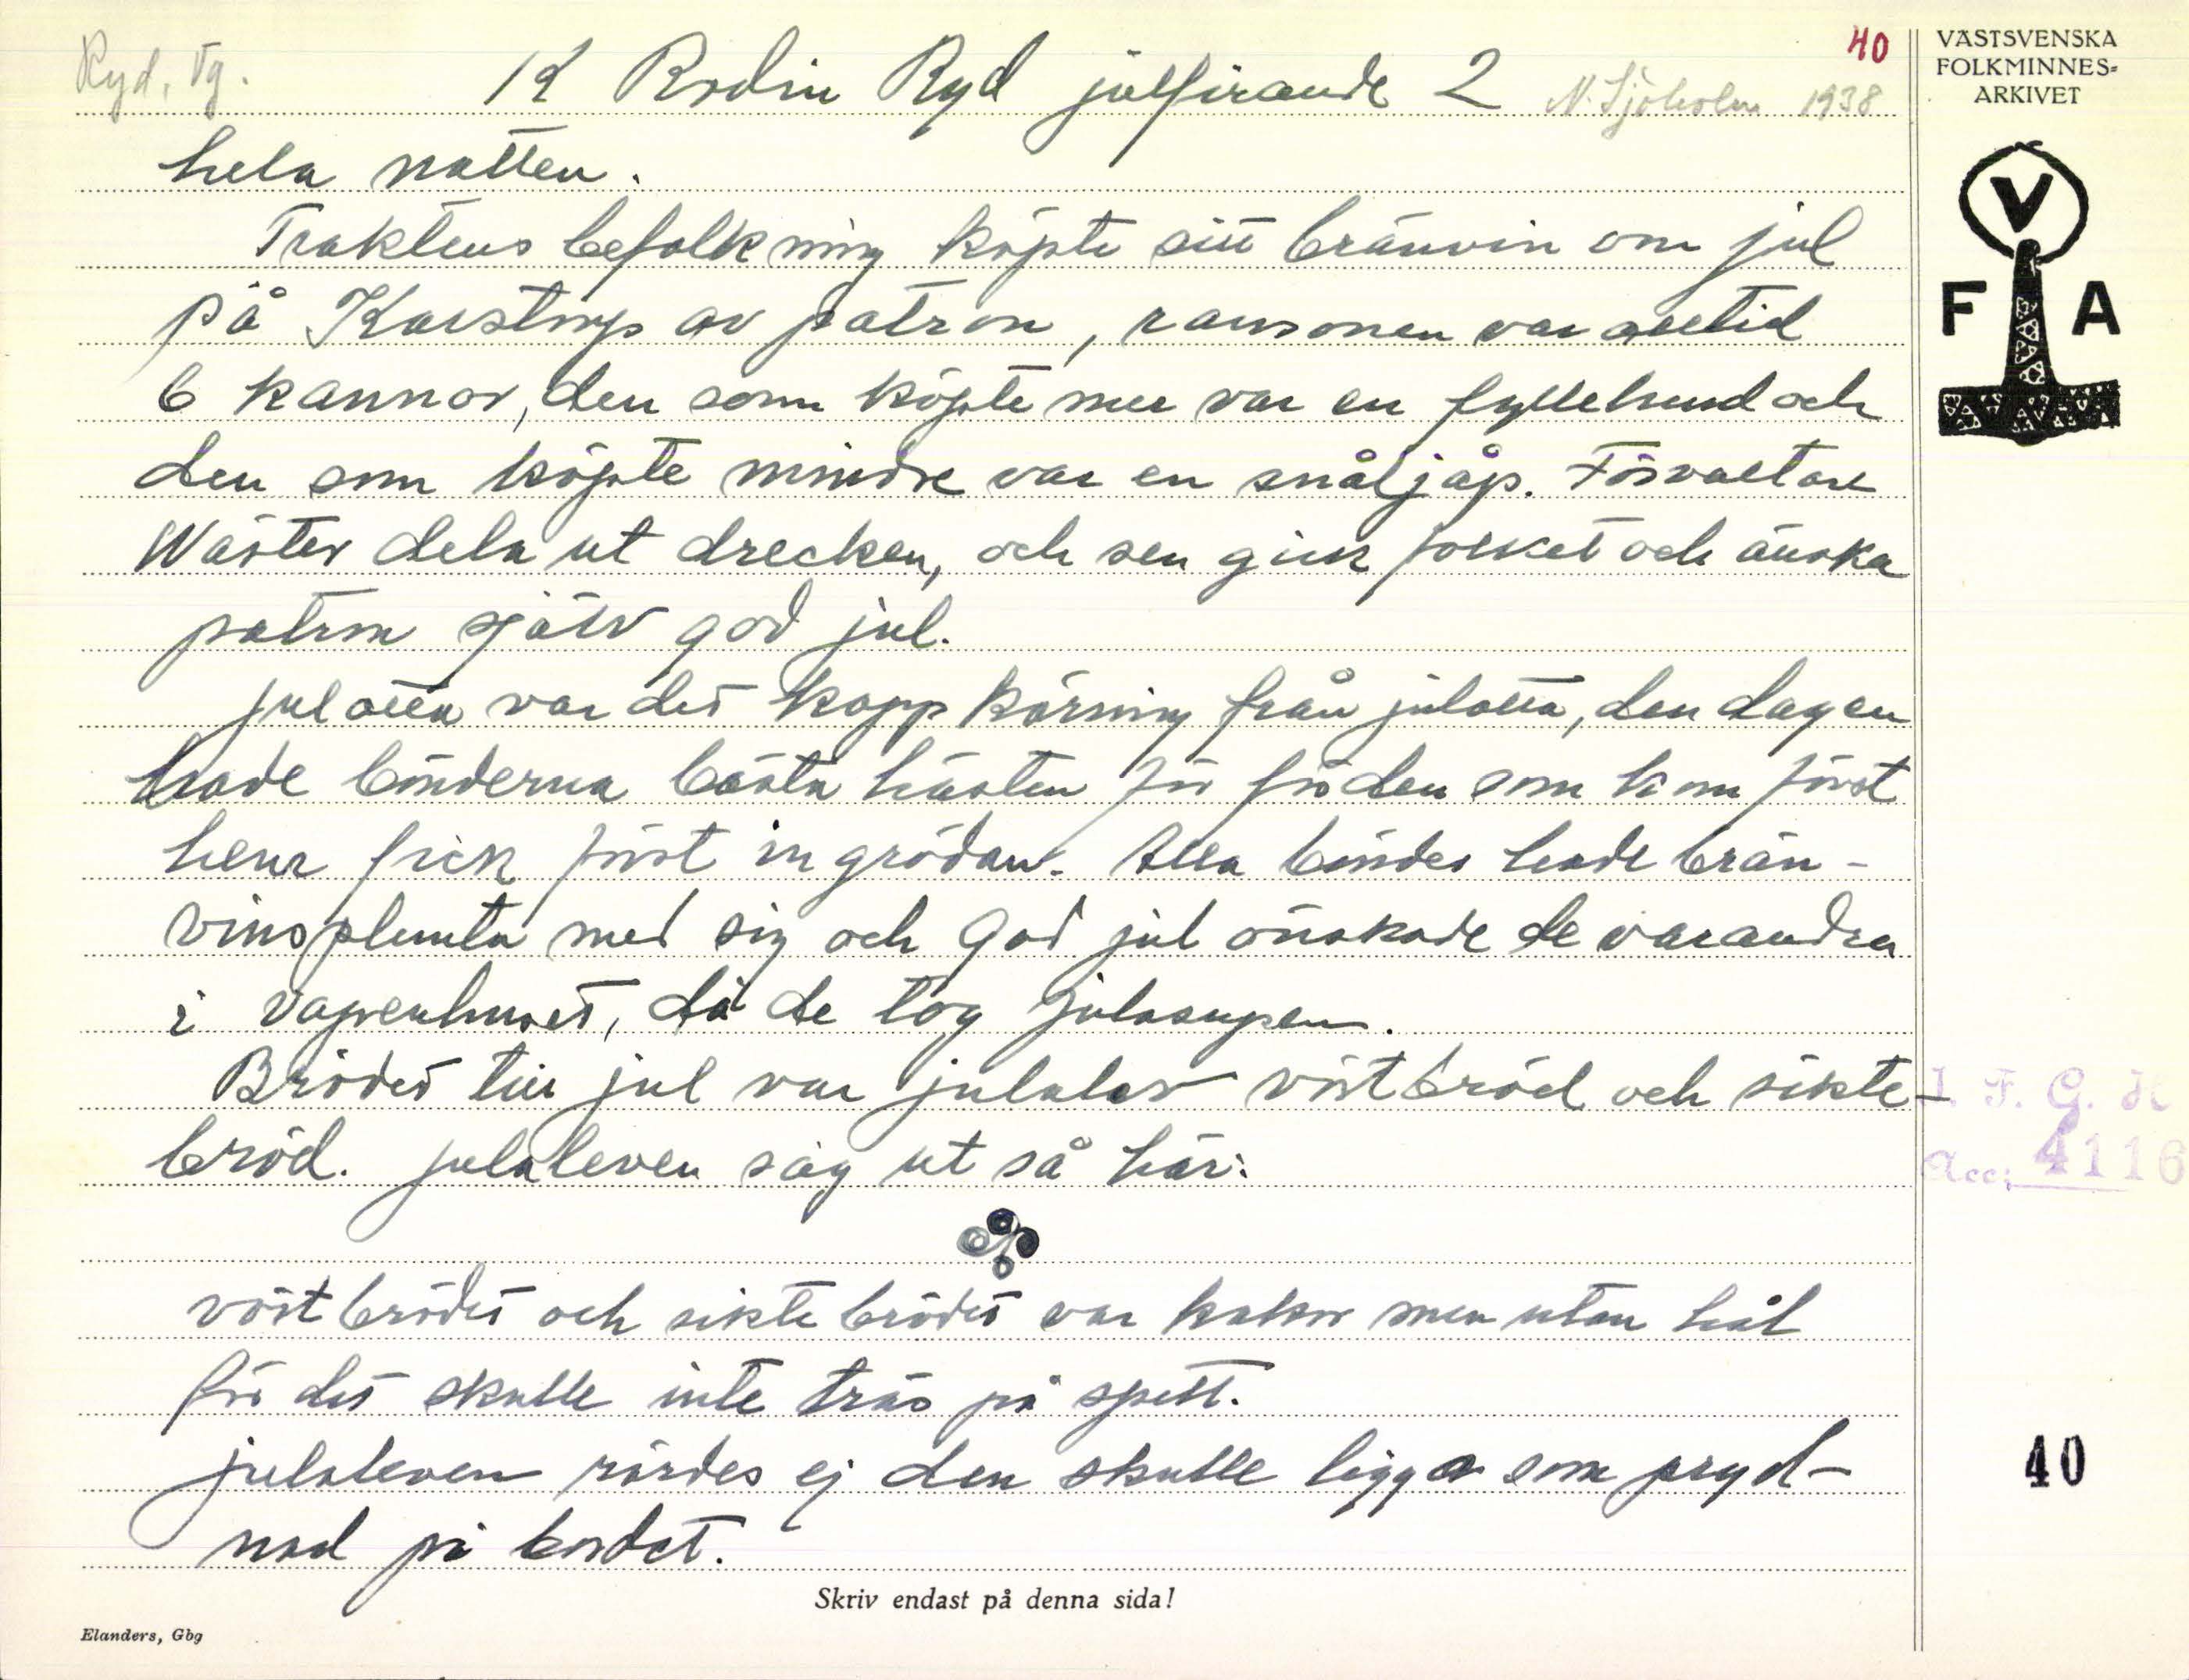 Ryd, Vg.
K Rodin Ryd julfirande 2
N. Sjöholm 1938
40
VÄSTSVENSKA
FOLKMINNES=
ARKIVET
V
F A
hela natten.
Traktens befolkning köpte sitt bränvin om jul
på Karstorp av patron, ransonen var alltid
6 kannor, den som köpte mer var en fyllehund och
den som köpte mindre var en snåljåp. Förvaltare
Wäster dela ut drecken, och sen gick folket och önska
patron själv god jul.
julotta var det kapp körning från julotta, den dagen
hade bönderna bästa hästen för för den som kom först
hem fick först in grödan. Alla bönder hade brän-
vins plunta med sig och God jul önskade de varandra
i vapenhuset, då de tog julasupen.
Brödet till jul var julalev vörtbröd och sikte-
bröd. julaleven såg ut så här:
vörtbrödet och siktebrödet var kakor men utan hål
för det skulle inte träs på spett.
julaleven rördes ej den skulle ligga som pryd-
nad på bordet.
I. F. G. H
Acc: 4116
40
Skriv endast på denna sida!
Elanders, Gbg